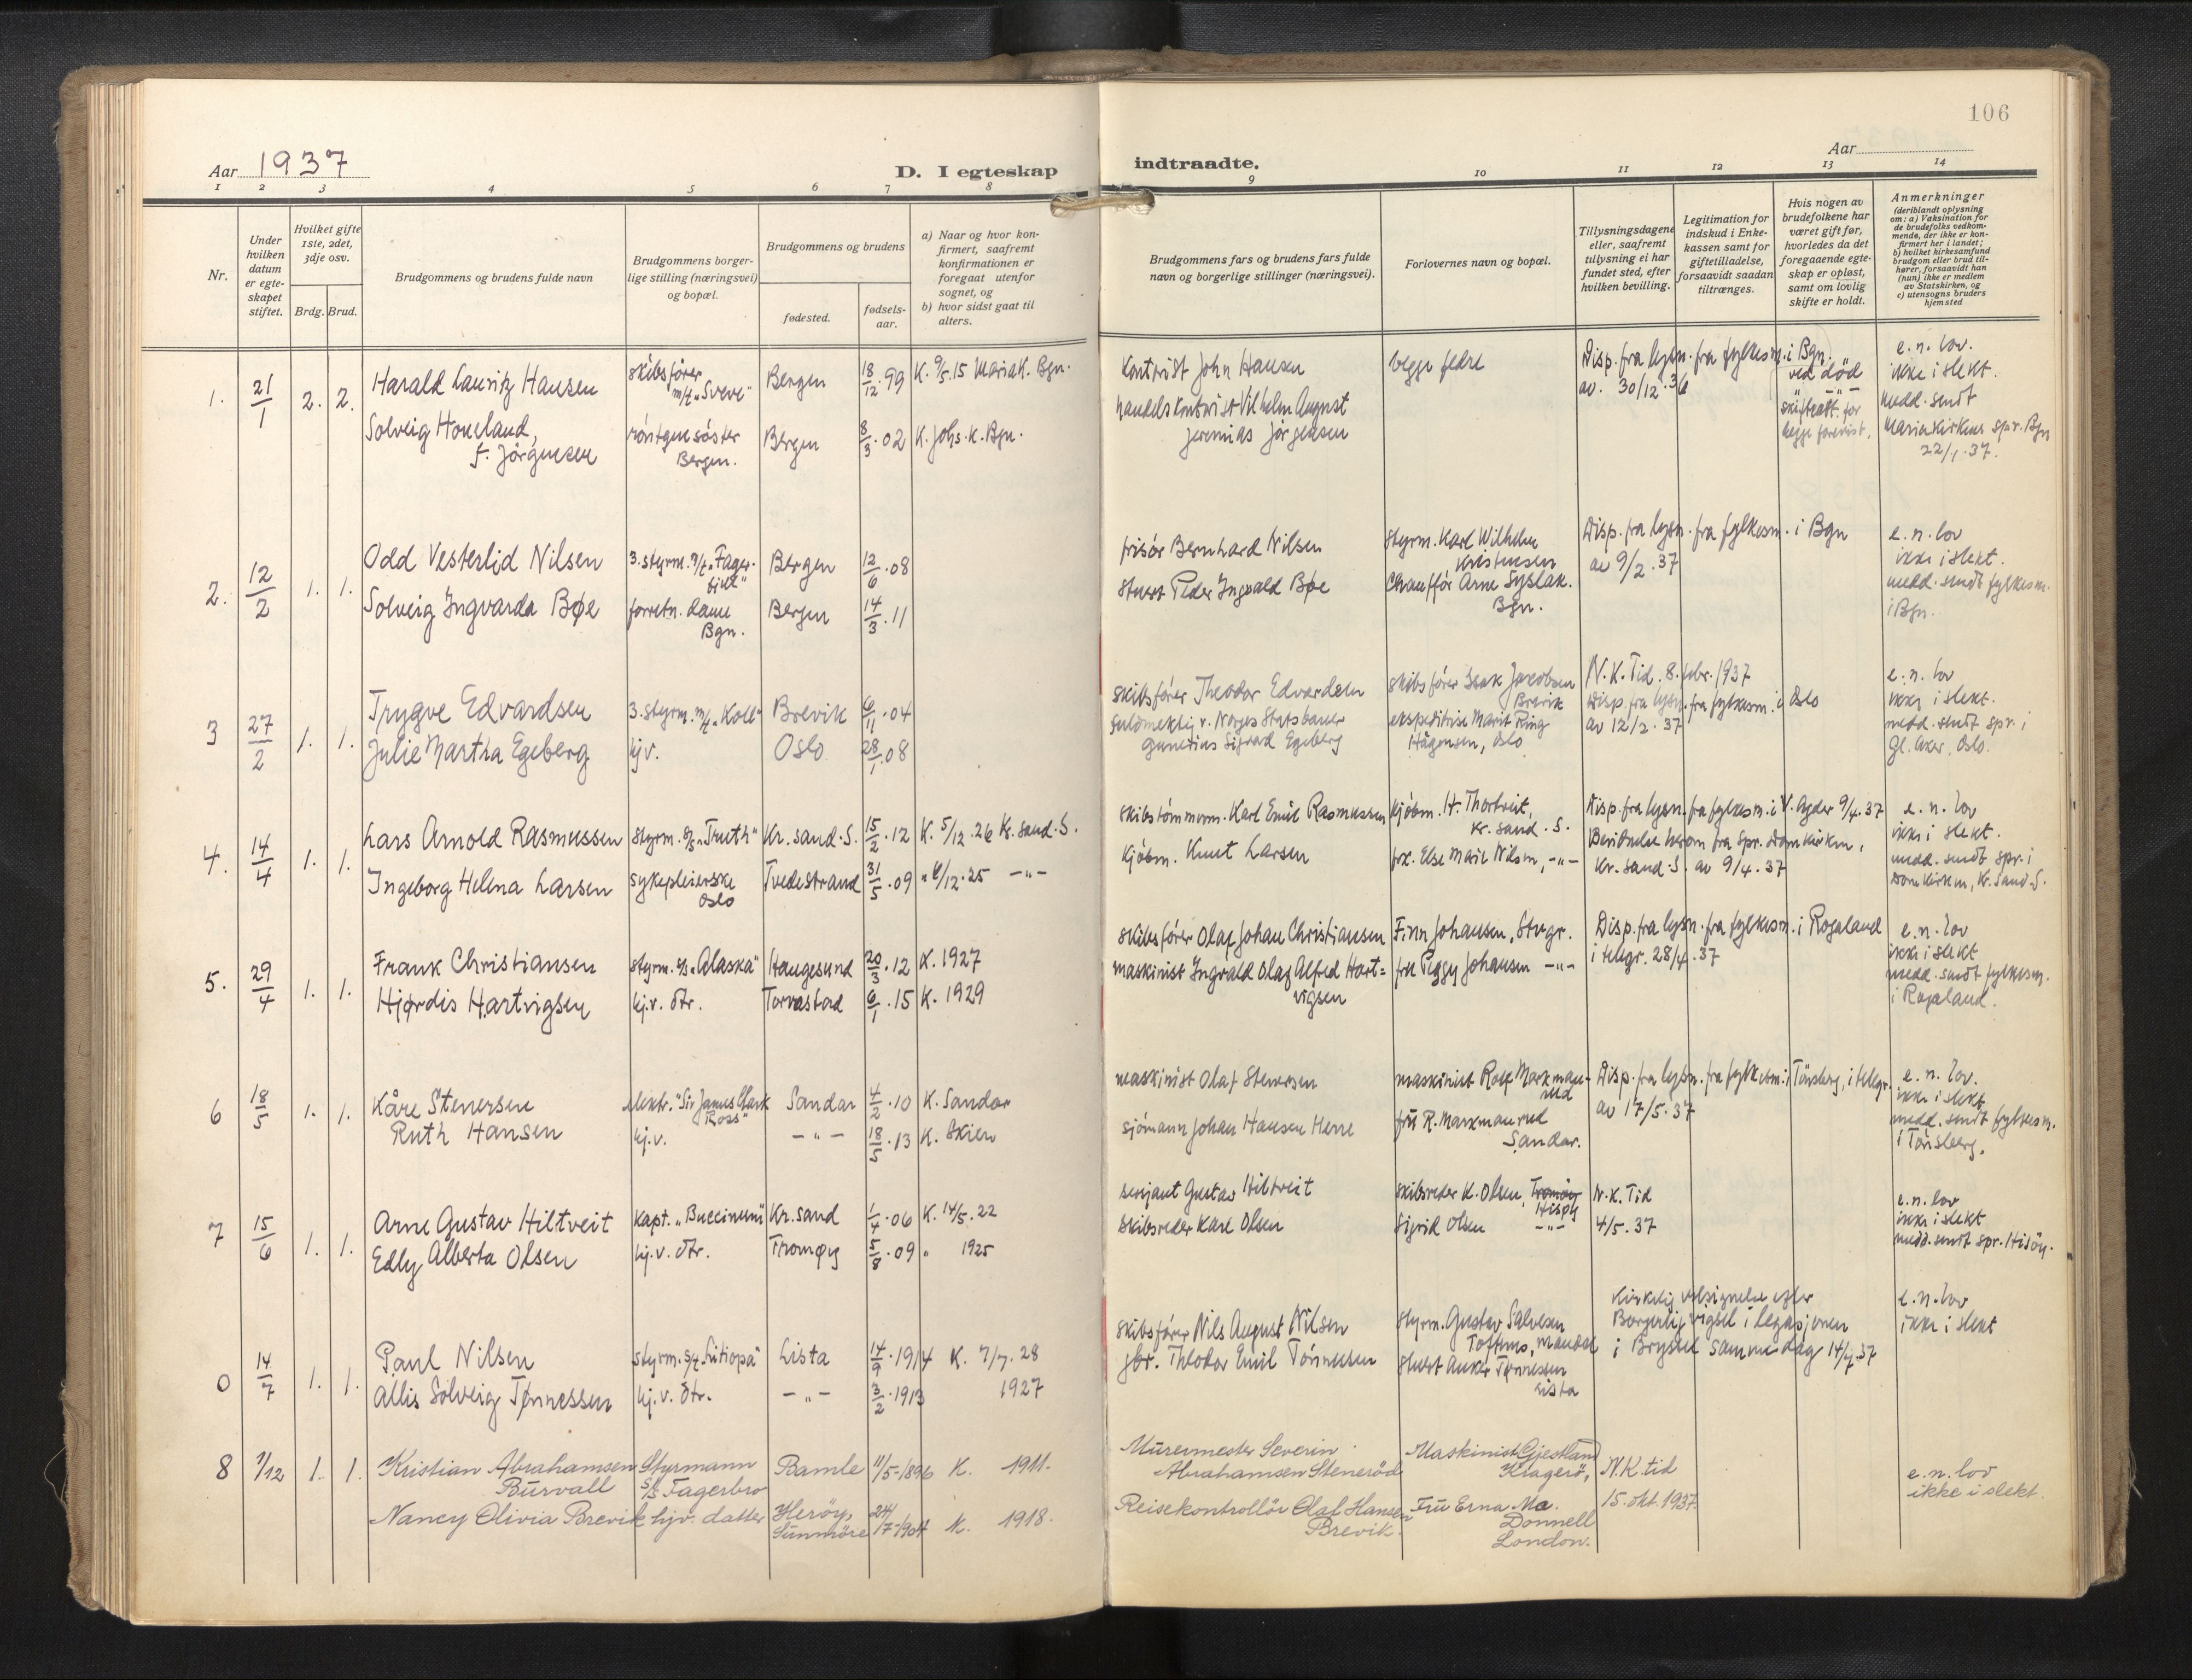 106
Aar 1937
D. I egteskap
indtraadte.
Aar
1 2 3 4 5 6 7 8
9 10 11 12 13 14
Nr.
Under hvilken datum er egteskapet stiftet.
Hvilket gifte 1ste, 2det, 3dje osv.
Brdg. Brud.
Brudgommens og brudens fulde navn
Brudgommens borgerlige stilling (næringsvei) og bopæl.
Brudgommens og brudens
fødested.
fødselsaar.
a) Naar og hvor konfirmert, saafremt konfirmationen er foregaat utenfor sognet, og
b) hvor sidst gaat til alters.
Brudgommens fars og brudens fars fulde navn og borgerlige stillinger (næringsvei).
Forlovernes navn og bopæl.
Tillysningsdagene eller, saafremt tillysning ei har fundet sted, efter hvilken bevilling.
Legitimation for indskud i Enkekassen samt for giftetilladelse, forsaavidt saadan tiltrænges.
Hvis nogen av brudefolkene har været gift før, hvorledes da det foregaaende egteskap er opløst, samt om lovlig skifte er holdt.
Anmerkninger
(deriblandt oplysning om: a) Vaksination for de brudefolks vedkommende, der ikke er konfirmert her i landet; b) hvilket kirkesamfund brudgom eller brud tilhører, forsaavidt han (hun) ikke er medlem av Statskirken, og c) utensogns bruders hjemsted
1. 21/1 2. 2. Harald Lauritz Hansen
skibsfører m/t „Sveve"
Bergen 18/12.99 K. 9/5.15 Mariak. Bgn.
Solveig Houeland, f. Jørgensen
røntgensøster Bergen.
Bergen 8/3.02 K. Johs. k. Bgn.
Kontorist John Hansen
handelskontorist Vilhelm August Jeremias Jørgensen
begge fedre
Disp. fra lysn. fra fylkesm. i Bgn.
av. 30/12.36
ved død
skifteatt. for begge forevist.
e. n. lov.
ikke i slekt.
medd. sendt
Mariakirkens spr. Bgn
22/1.37.
2. 12/2 1. 1. Odd Vesterlid Nilsen
3. styrm. m/t „Fager-
Bergen 12/6.08
Solveig Ingvarda Bøe
forretn. dame Bgn.
Bergen 14/3.11
frisør Bernhard Nilsen
stuert Peder Ingvald Bøe
styrm. Karl Wilhelm Kristensen
Chauffør Arne Syslak. Bgn.
Disp. fra lysn. fra fylkesm. i Bgn
av 9/2.37
e. n. lov
ikke i slekt.
medd. sendt fylkesm.
i Bgn.
3 27/2 1. 1. Trygve Edvardsen
3. styrm. m/t „Koll"
Brevik 6/11.04
Julie Martha Egeberg
hjv.
Oslo 28/1.08
skibsfører Theodor Edvardsen
fuldmektig v. Norges Statsbaner
Gunerius Sigvard Egeberg
skibsfører Isak Jacobsen Brevik
ekspeditrise Marit Ring
Hågensen, Oslo
N. K. Tid. 8. febr. 1937
Disp. fra lysn. fra fylkesm. i Oslo
av 12/2.37
e. n. lov
ikke i slekt.
medd. sendt spr. i
Gl. Aker, Oslo.
4. 14/4 1. 1. Lars Arnold Rasmussen
styrm. s/s „Truth"
Kr. sand. S. 15/2.12 K. 5/12.26 Kr. sand. S.
Ingeborg Helena Larsen
sykepleierske Oslo
Tvedestrand 31/5.09 „ 6/12.25 —"—
skibstømmerm. Karl Emil Rasmussen
Kjøbm. Knut Larsen
kjøbm. H. Thortveit, Kr. sand. S.
frk. Else Marie Nilsen, —"—
Disp. fra lysn. fra fylkesm. i V. Agder 9/4.37
Bevidnelse herom fra Spr. Domkirken,
Kr. sand. S. av 9/4.37
e. n. lov
ikke i slekt.
medd. sendt spr. i
Domkirken, Kr. sand. S.
5. 29/4 1. 1. Frank Christiansen
styrm. s/s „Alaska"
Haugesund 20/3.12 K. 1927
Hjørdis Hartvigsen
hj. v. dtr.
Torvastad 6/1.15 K. 1929
skibsfører Olaf Johan Christiansen
maskinist Ingvald Olaf Alfred Hartvigsen
Finn Johansen, Stvgr.
fru Peggy Johansen —"—
Disp. fra lysn. fra fylkesm. i Rogaland
i telegr. 28/4.37
e. n. lov
ikke i slekt
medd. sendt fylkesm.
i Rogaland.
6 18/5 1. 1. Kåre Stenersen
elektr. "Sir James Clark Ross"
Sandar 4/2.10 K. Sandar
Ruth Hansen
hj. v.
—"— 18/5.13 K. Skien
maskinist Olaf Stenersen
sjømann Johan Hansen Herre
maskinist Rolf Markmanrud
fru R. Markmanrud
Sandar.
Disp. fra lysn. fra fylkesm. i Tønsberg, i telegr.
av 17/5.37
e. n. lov.
ikke i slekt
medd. sendt fylkesm.
i Tønsberg.
7 15/6 1. 1. Arne Gustav Hiltveit
Kapt. „Buccinum"
Kr. sand 1/4.06 K. 14/5.22
Edly Alberta Olsen
hj. v. dtr.
Tromøy 5/8.09 „ 1925
sersjant Gustav Hiltveit
Skibsreder Karl Olsen
skibsreder K. Olsen, Tromøy Hisøy
Sigrid Olsen —"—
N. K. Tid
4/5.37
e. n. lov
ikke i slekt
medd. sendt spr. Hisøy.
0 14/7 1. 1. Paul Nilsen
Lista 14/9.1914 K. 7/7.28
Allis Solveig Tønnessen
hj. v. dtr.
—"— 3/2.1913 1927
skibsfører Nils August Nilsen
gbr. Theodor Emil Tønnessen
styrm. Gustav Salvesen
Mandal
stuert Anker Tønnessen
Lista
Kirkelig velsignelse efter
Borgerlig vigsel i legasjonen
i Bryssel samme dag 14/7.37
e. n. lov
ikke i slekt
8 7/12 1. 1. Kristian Abrahamsen Burvall
Styrmann s/s Fagerbro
Bamle 11/5-1896 K. 1911.
Nancy Olivia Brevik hjv. datter
Herøy, Sunnmøre 24/7-1904 K. 1918.
Murermester Severin
Abrahamsen Stenerød
Reisekontrollør Olaf Hansen
Brevik.
Maskinist Gjestland
Kragerø,
Fru Erna Mc. Donnell
London.
N. K. tid
15. okt. 1937.
e. n. lov
ikke i slekt.